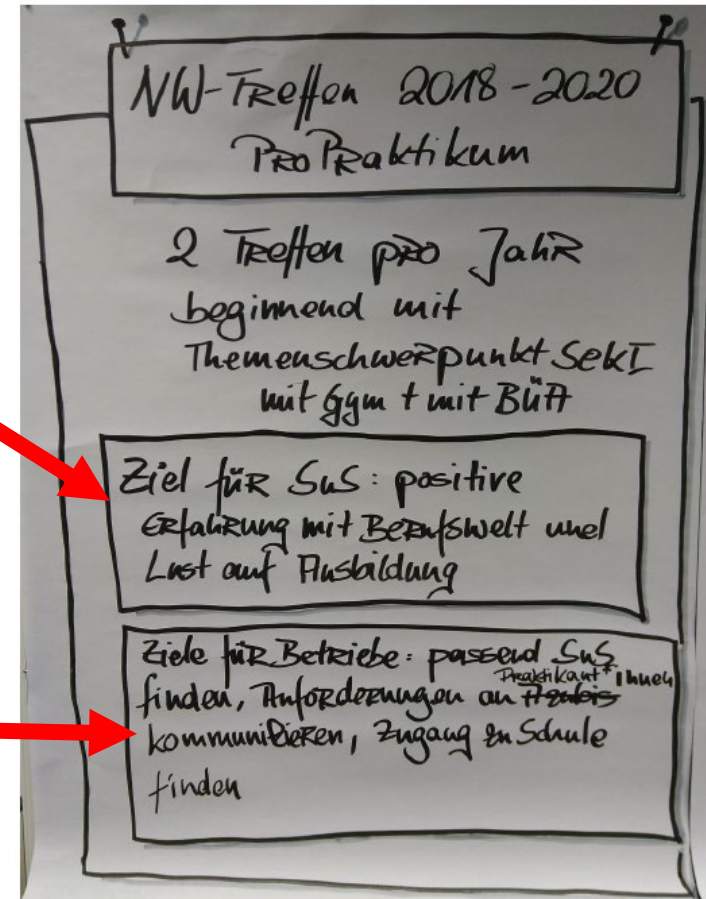 NW-Treffen 2018-2020
ProPraktikum
2 Treffen pro Jahr
beginnend mit
Themenschwerpunkt SekI
mit Gym + mit BüA
Ziel für SuS: positive
Erfahrung mit Berufswelt und
Lust auf Ausbildung
Ziele für Betriebe: passend SuS
Praktikant*innen
finden, Anforderungen an Azubis
kommunizieren, Zugang zu Schule
finden